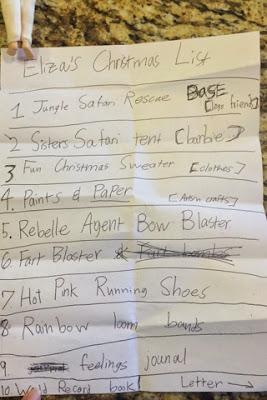 Eliza's Christmas List
1 Jungle Safari Rescue BASE
[Lions friend]
2 Sisters Safari tent [barbie]
3 Fun Christmas Sweater [clothes]
4. Paints & Paper [Artsn crafts]
5. Rebelle Agent Bow Blaster
6. Fart Blaster
7 Hot Pink Running Shoes
8 Rainbow loom bands
9 feelings jounal
10 World Record book Letter →